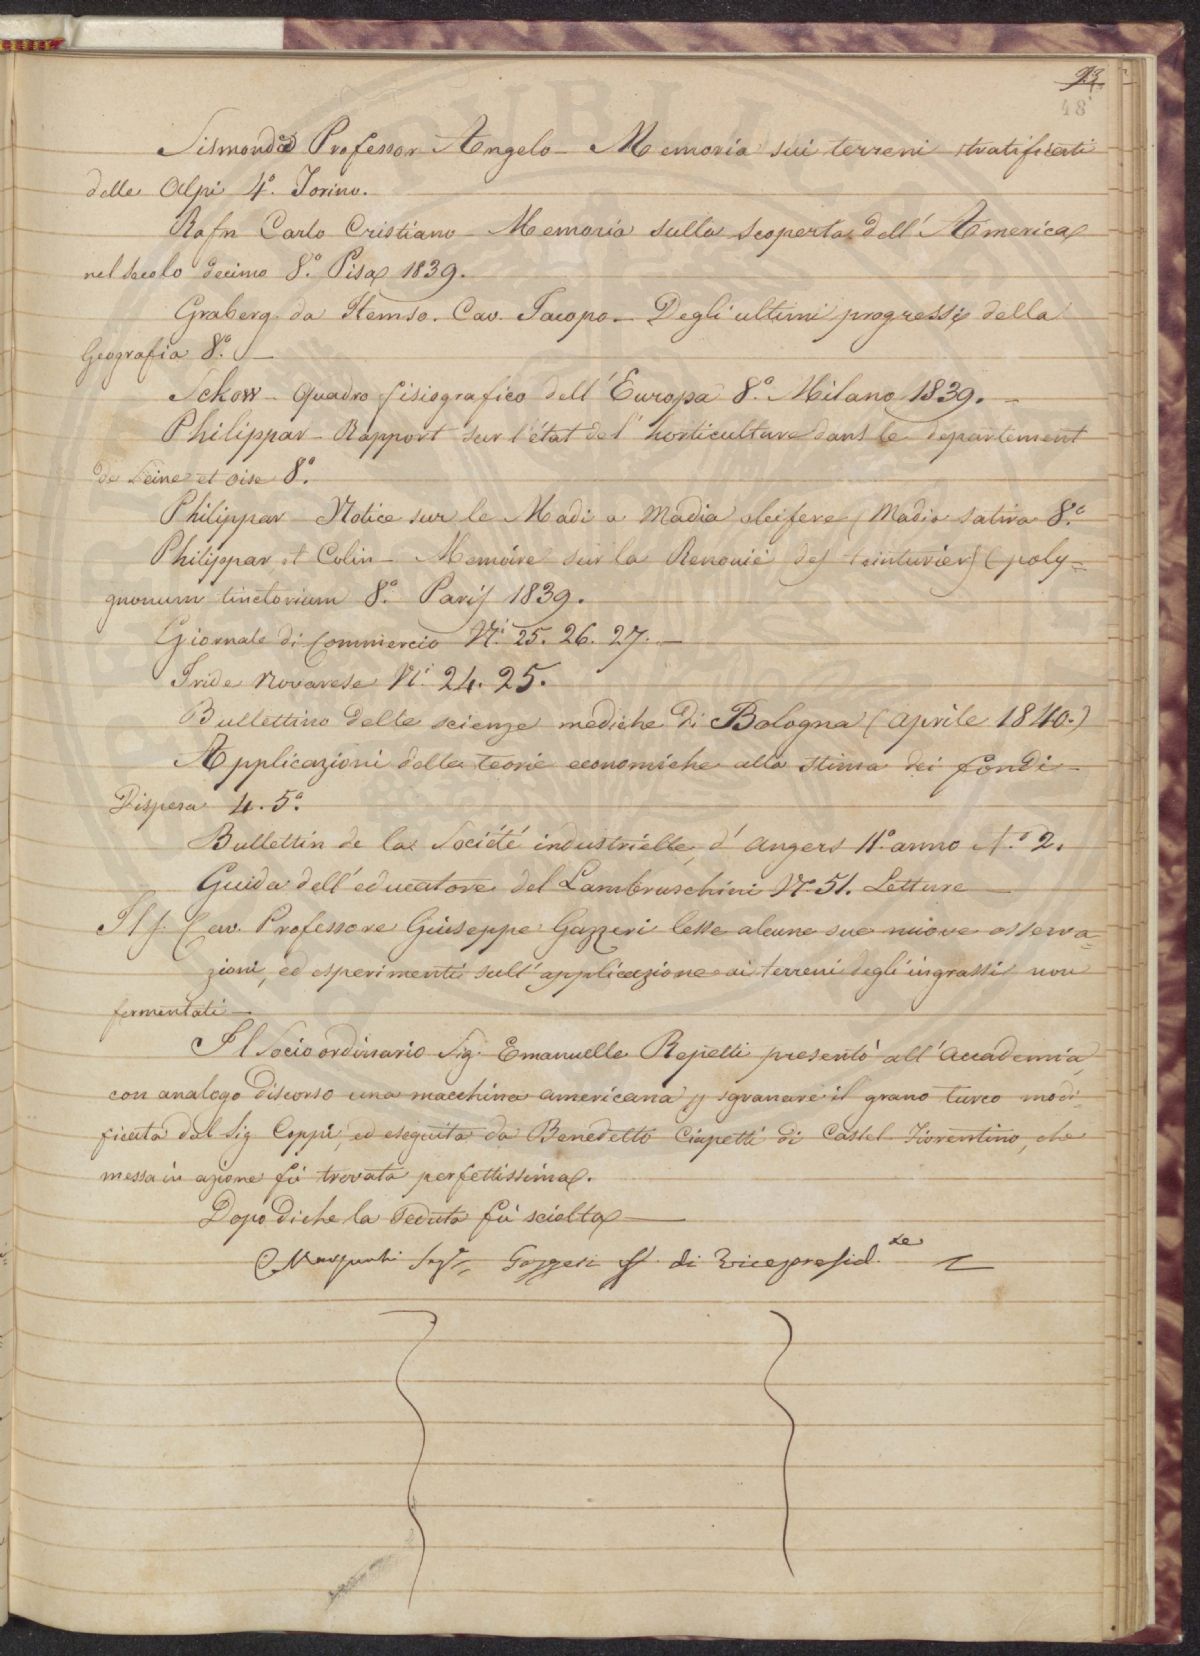 93
48
Sismonda Professor Angelo - Memoria sui terreni stratificati
delle Alpi 4.° Torino.
Rafn Carlo Cristiano - Memoria sulla scoperta dell' America
nel Secolo decimo 8.° Pisa 1839.
Graberg da Hemso. Cav. Jacopo - Degli ultimi progressi della
Geografia 8.° -
Sckow - Quadro fisiografico dell' Europa 8.° Milano 1839. -
Philippar - Rapport sur l'état de l' horticulture dans le departement
de Seine et oise 8.°
Philippar - Notice sur le Madi o Madia oleifere (Madia sativa 8.°
Philippar et Colin - Memoire sur la Renouié des teinturiers (poly=
gnonum tinctorium 8.° Paris 1839.
Giornale di Commercio N.i 25. 26. 27. -
Iride Novarese N.i 24. 25.
Bullettino delle scienze mediche di Bologna (aprile 1840.)
Applicazioni delle teorie economiche alla stima dei fondi -
Dispesa 4. 5.a
Bullettin de la Société industrielle d' Angers 11.° anno N.° 2.
Guida dell' educatore del Lambruschini N.° 51. Letture -
Il S. Cav. Professore Giuseppe Gazzeri lesse alcune sue nuove osserva=
zioni, ed esperimenti sull' applicazione ai terreni degli ingrassi non
fermentati -
Il Socio ordinario Sig. Emanuelle Repetti presentò all' accademia,
con analogo discorso una macchina americana p sgranare il grano turco modi=
ficata dal Sig Coppi, ed eseguita da Benedetto Ciapetti di Castel Fiorentino, che
messa in azione fù trovata perfettissima.
Dopo di che la Seduta fù sciolta -
Gazzeri ff. di Vicepresid.te